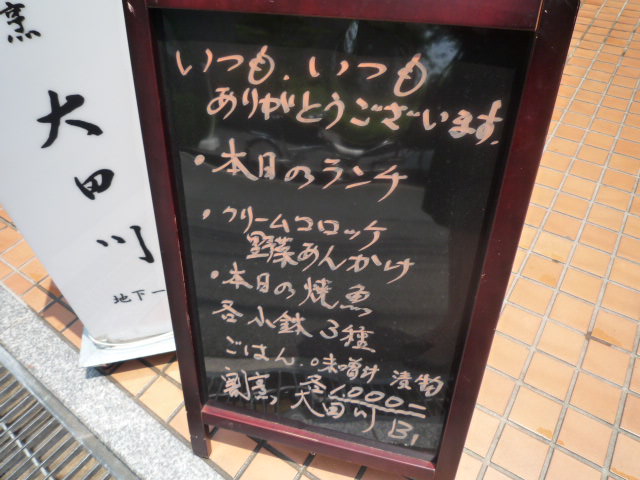 烹
大田川
地下一
いつも、いつも
ありがとうございます。
・本日のランチ
・クリームコロッケ
野菜あんかけ
・本日の焼魚
各小鉢3種
ごはん、味噌汁 漬物
各1,000-
割烹、大田川 B1